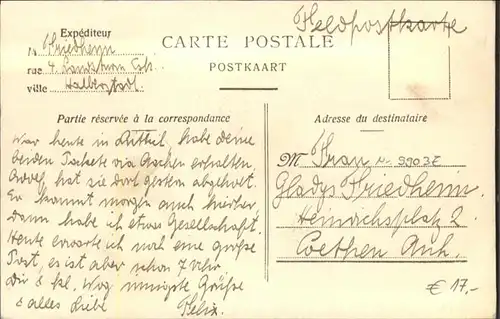 Feldpostkarte
Expéditeur
M Friedheim
rue 4. Landsturm Esk.
ville Halberstadt.
CARTE POSTALE
POSTKAART
Partie réservée à la correspondance
War heute in habe deine
beiden Packete via erhalten.
hat sie dort gestern abgeholt.
Er kommt morgen auch hierher
dann habe ich etwas Gesellschaft.
Heute erwarte ich noch eine große
Post, es ist aber schon 7 Uhr
Dir & kl. innigste Grüße
& alles Liebe Felix.
Adresse du destinataire
M Frau
N- 9903Z
Gladys Friedheim
Heinrichsplatz 2
Coethen Anh.
€ 17,-